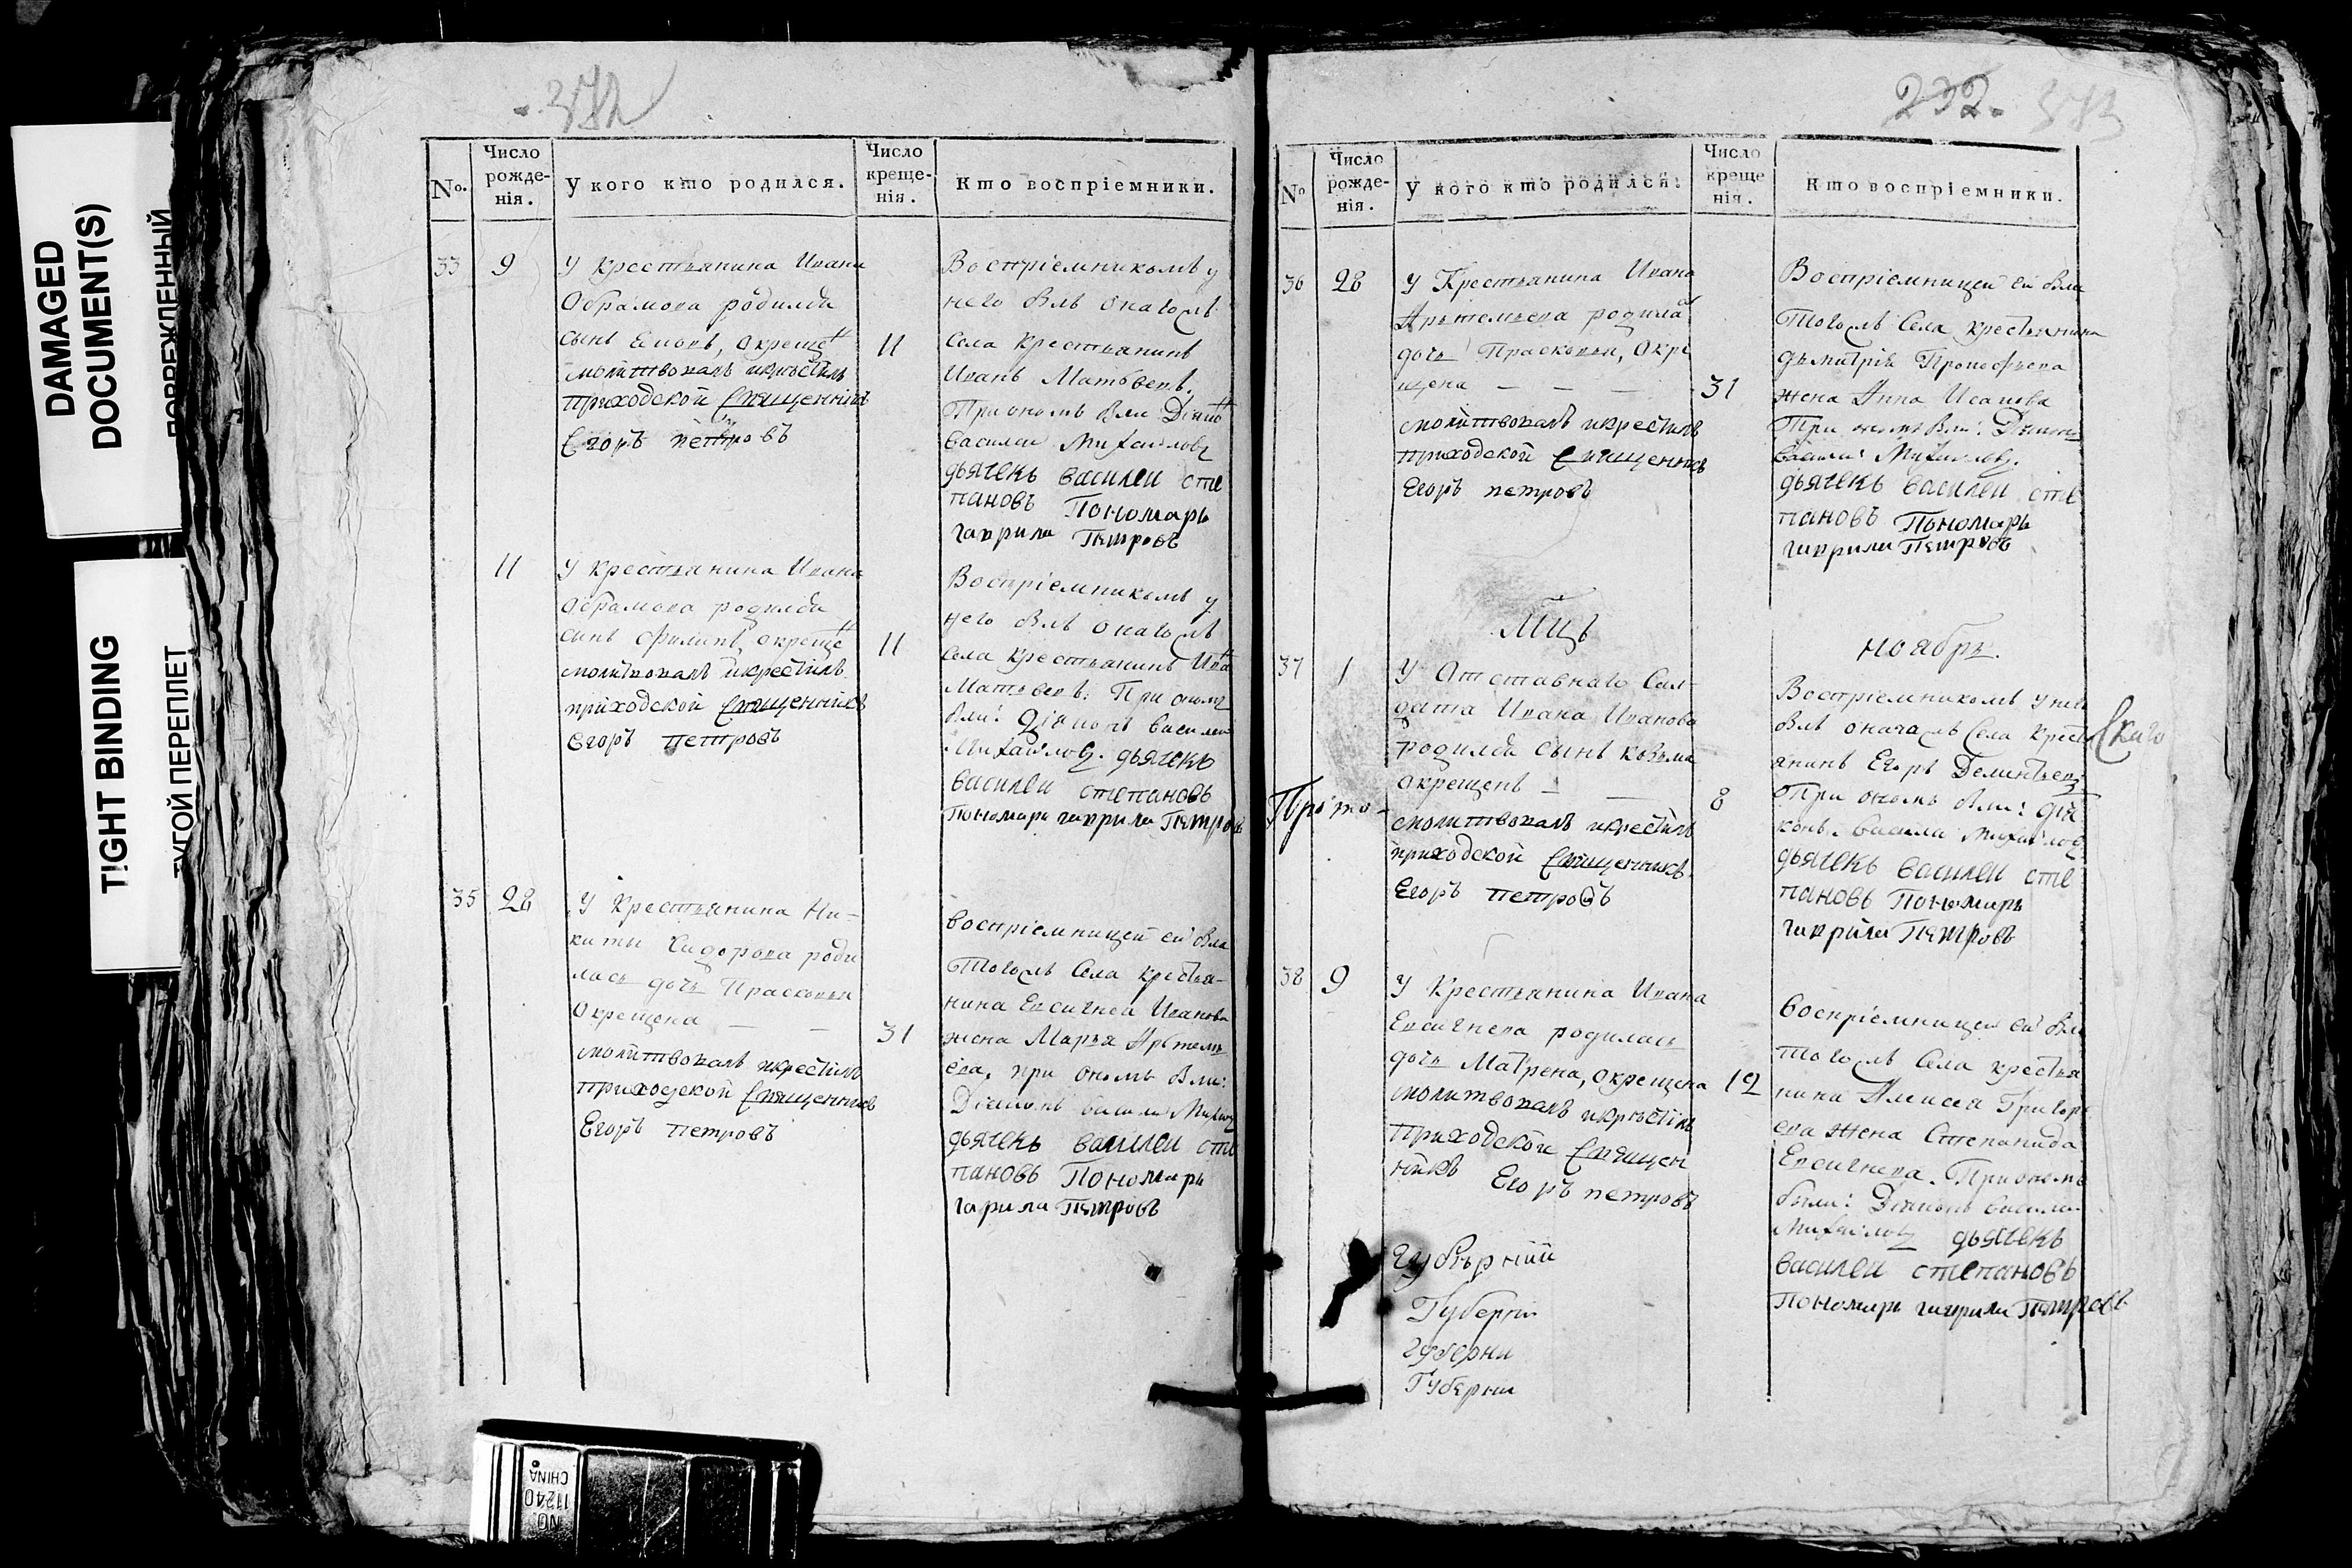 DAMAGED
DOCUMENT(S)
ПОВРЕЖДЕННЫЙ
TIGHT BINDING
ТУГОЙ ПЕРЕПЛЕТ
372
№.
Число рожде-нія.
У кого кто родился.
Число креще-нія.
Кто воспріемники.
33
9
У крестьянина Ивана
Обрамова родился
сынъ окреще
молитвовалъ икрѣстилъ
приходской Священникъ
Егоръ петровъ
11
Воспріемникомъ у
него былъ онагожъ
Села Крестьянинъ
Иванъ Матвеевъ.
При ономъ были Діако
василеи Михаиловъ
дьячекъ василеи сте
пановъ Пономарь
гаврила Петровъ
11
У крестьянина Ивана
Обрамова родился
сынъ Филипъ, окреще
молитвовалъ икрестилъ
приходской Священникъ
Егоръ петровъ
11
Воспріемникомъ у
него былъ онагожъ
Села крестьянинъ Ива
Матвеевъ. При ономъ
были: Діаконъ василеи
Михаиловъ. дьячекъ
василеи степановъ
Пономарь гаврила Петровъ
35
28
У Крестьянина Ни-
киты Сидорова роди
лась дочь Прасковья
Окрещена — —
молитвовалъ икрестилъ
приходской Священникъ
Егоръ петровъ
31
воспріемницей ей была
Тогожъ Села крестья-
нина Евсигнея Иванова
жена Марья Артемь
ева, при ономъ были:
Діаконъ василеи Михаи
дьячекъ василеи сте
пановъ Пономарь
гаврила Петровъ
232. 373
№
Число рожде-нія.
У кого кто родился:
Число креще нія.
Кто воспріемники.
36
28
У Крестьянина Ивана
Артемьева родила
дочь Прасковья, Окре
щена — — —
молитвовалъ икрестилъ
приходской Священникъ
Егоръ петровъ
31
Воспріемницей ей была
Тогожъ Села крестьянина
дьмитрія Прокофьева
жена Анна Исакова
При ономъ были: Діако
василеи Михаиловъ.
дьячекъ василеи сте
пановъ Пономарь
гаврила Петровъ
Мцъ
ноябрь.
37
1
У Отставнаго Сол-
дата Ивана Иванова
родился сынъ козьма
окрещенъ — —
молитвовалъ икрестилъ
приходской Священникъ
Егоръ петровъ
8
Воспріемникомъ у него
былъ онагожъ Села крест
янинъ Егоръ Дементьевъ
При ономъ были: дія
конъ. василеи Михаилов
дьячекъ василеи сте
пановъ Пономарь
гаврила Петровъ
38
9
У Крестьянина Ивана
Евсигнева родилась
дочь Матрена, окрещена
молитвовалъ икрѣстилъ
приходской Священ
никъ Егоръ петровъ
12
воспріемницей ей была
тогожъ Села крестья
нина Алексея Григорь
ева жена Степанида
Евсигнева. При ономъ
были: Діаконъ василеи
Михаиловъ дьячекъ
василеи степановъ
Пономарь гаврила Петровъ
губѣрнии
Губерни
губерни
Губерни
NO.
11240
CHINA